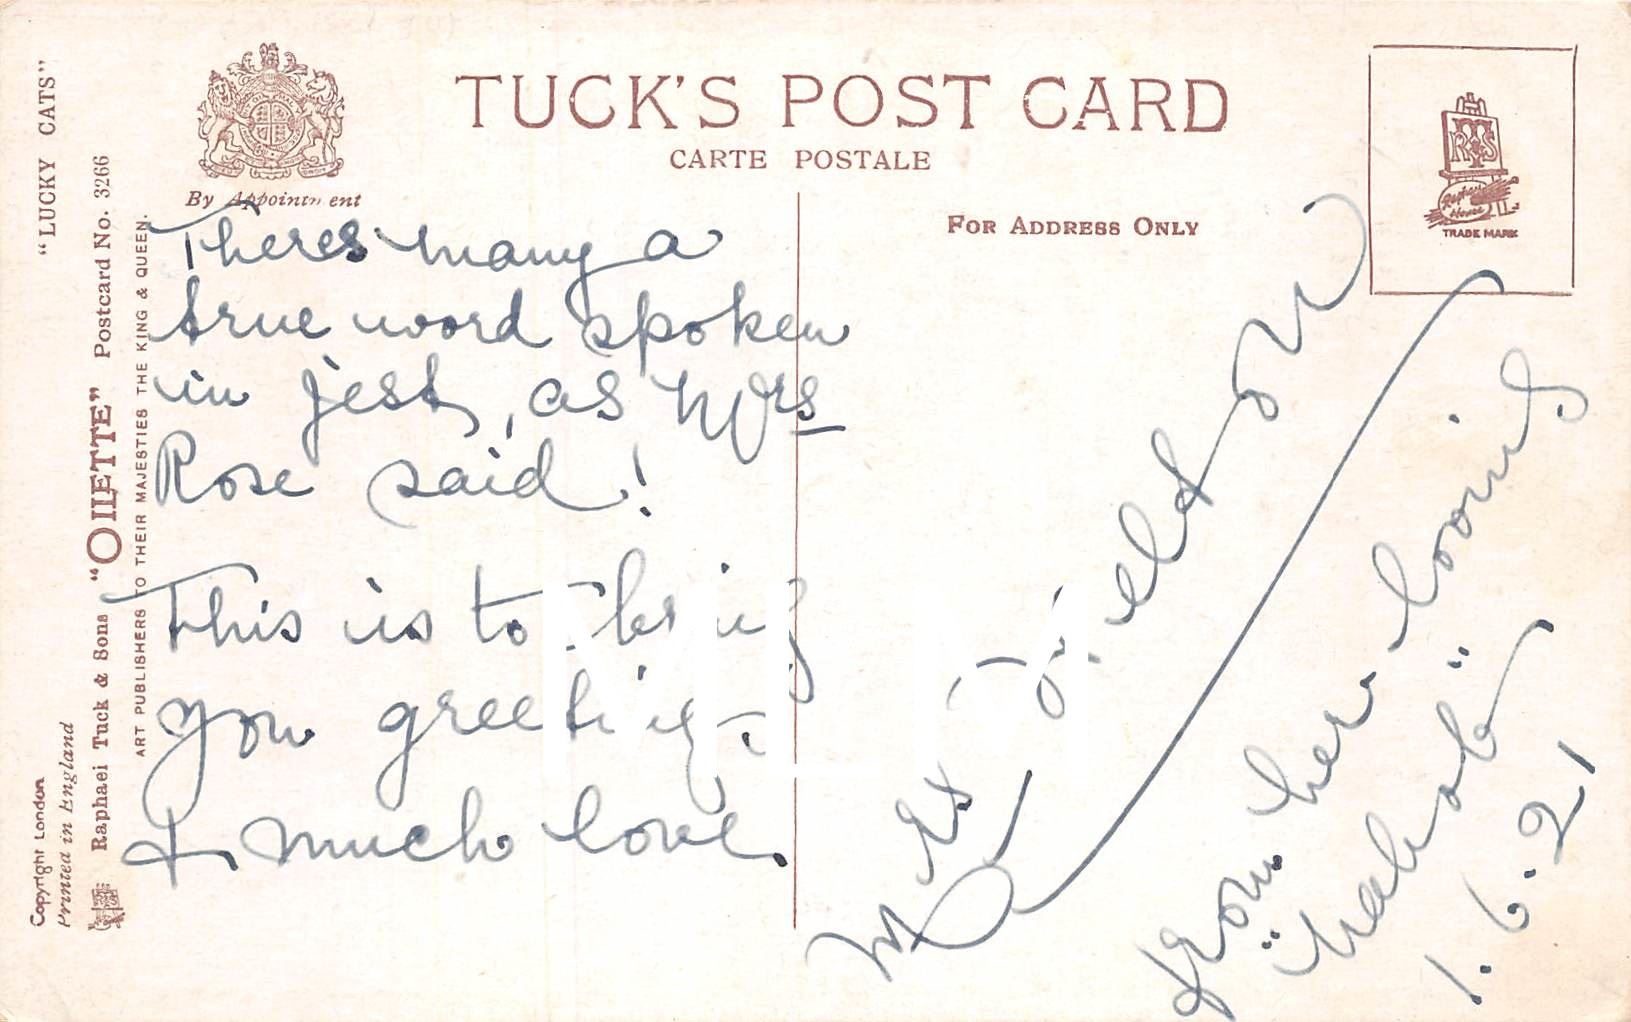 "LUCKY CATS"
Raphael Tuck & Sons "OILETTE" Postcard No. 3266
ART PUBLISHERS TO THEIR MAJESTIES THE KING & QUEEN.
Copyright London
Printed in England
By Appointment
TUCK'S POST CARD
CARTE POSTALE
FOR ADDRESS ONLY
RTS
Raphael
House
TRADE MARK
Theres many a
true word spoken
in jest, as Mrs
Rose said!
This is to bring
you greetings
& much love.
Mrs
from her loving
1.6.21